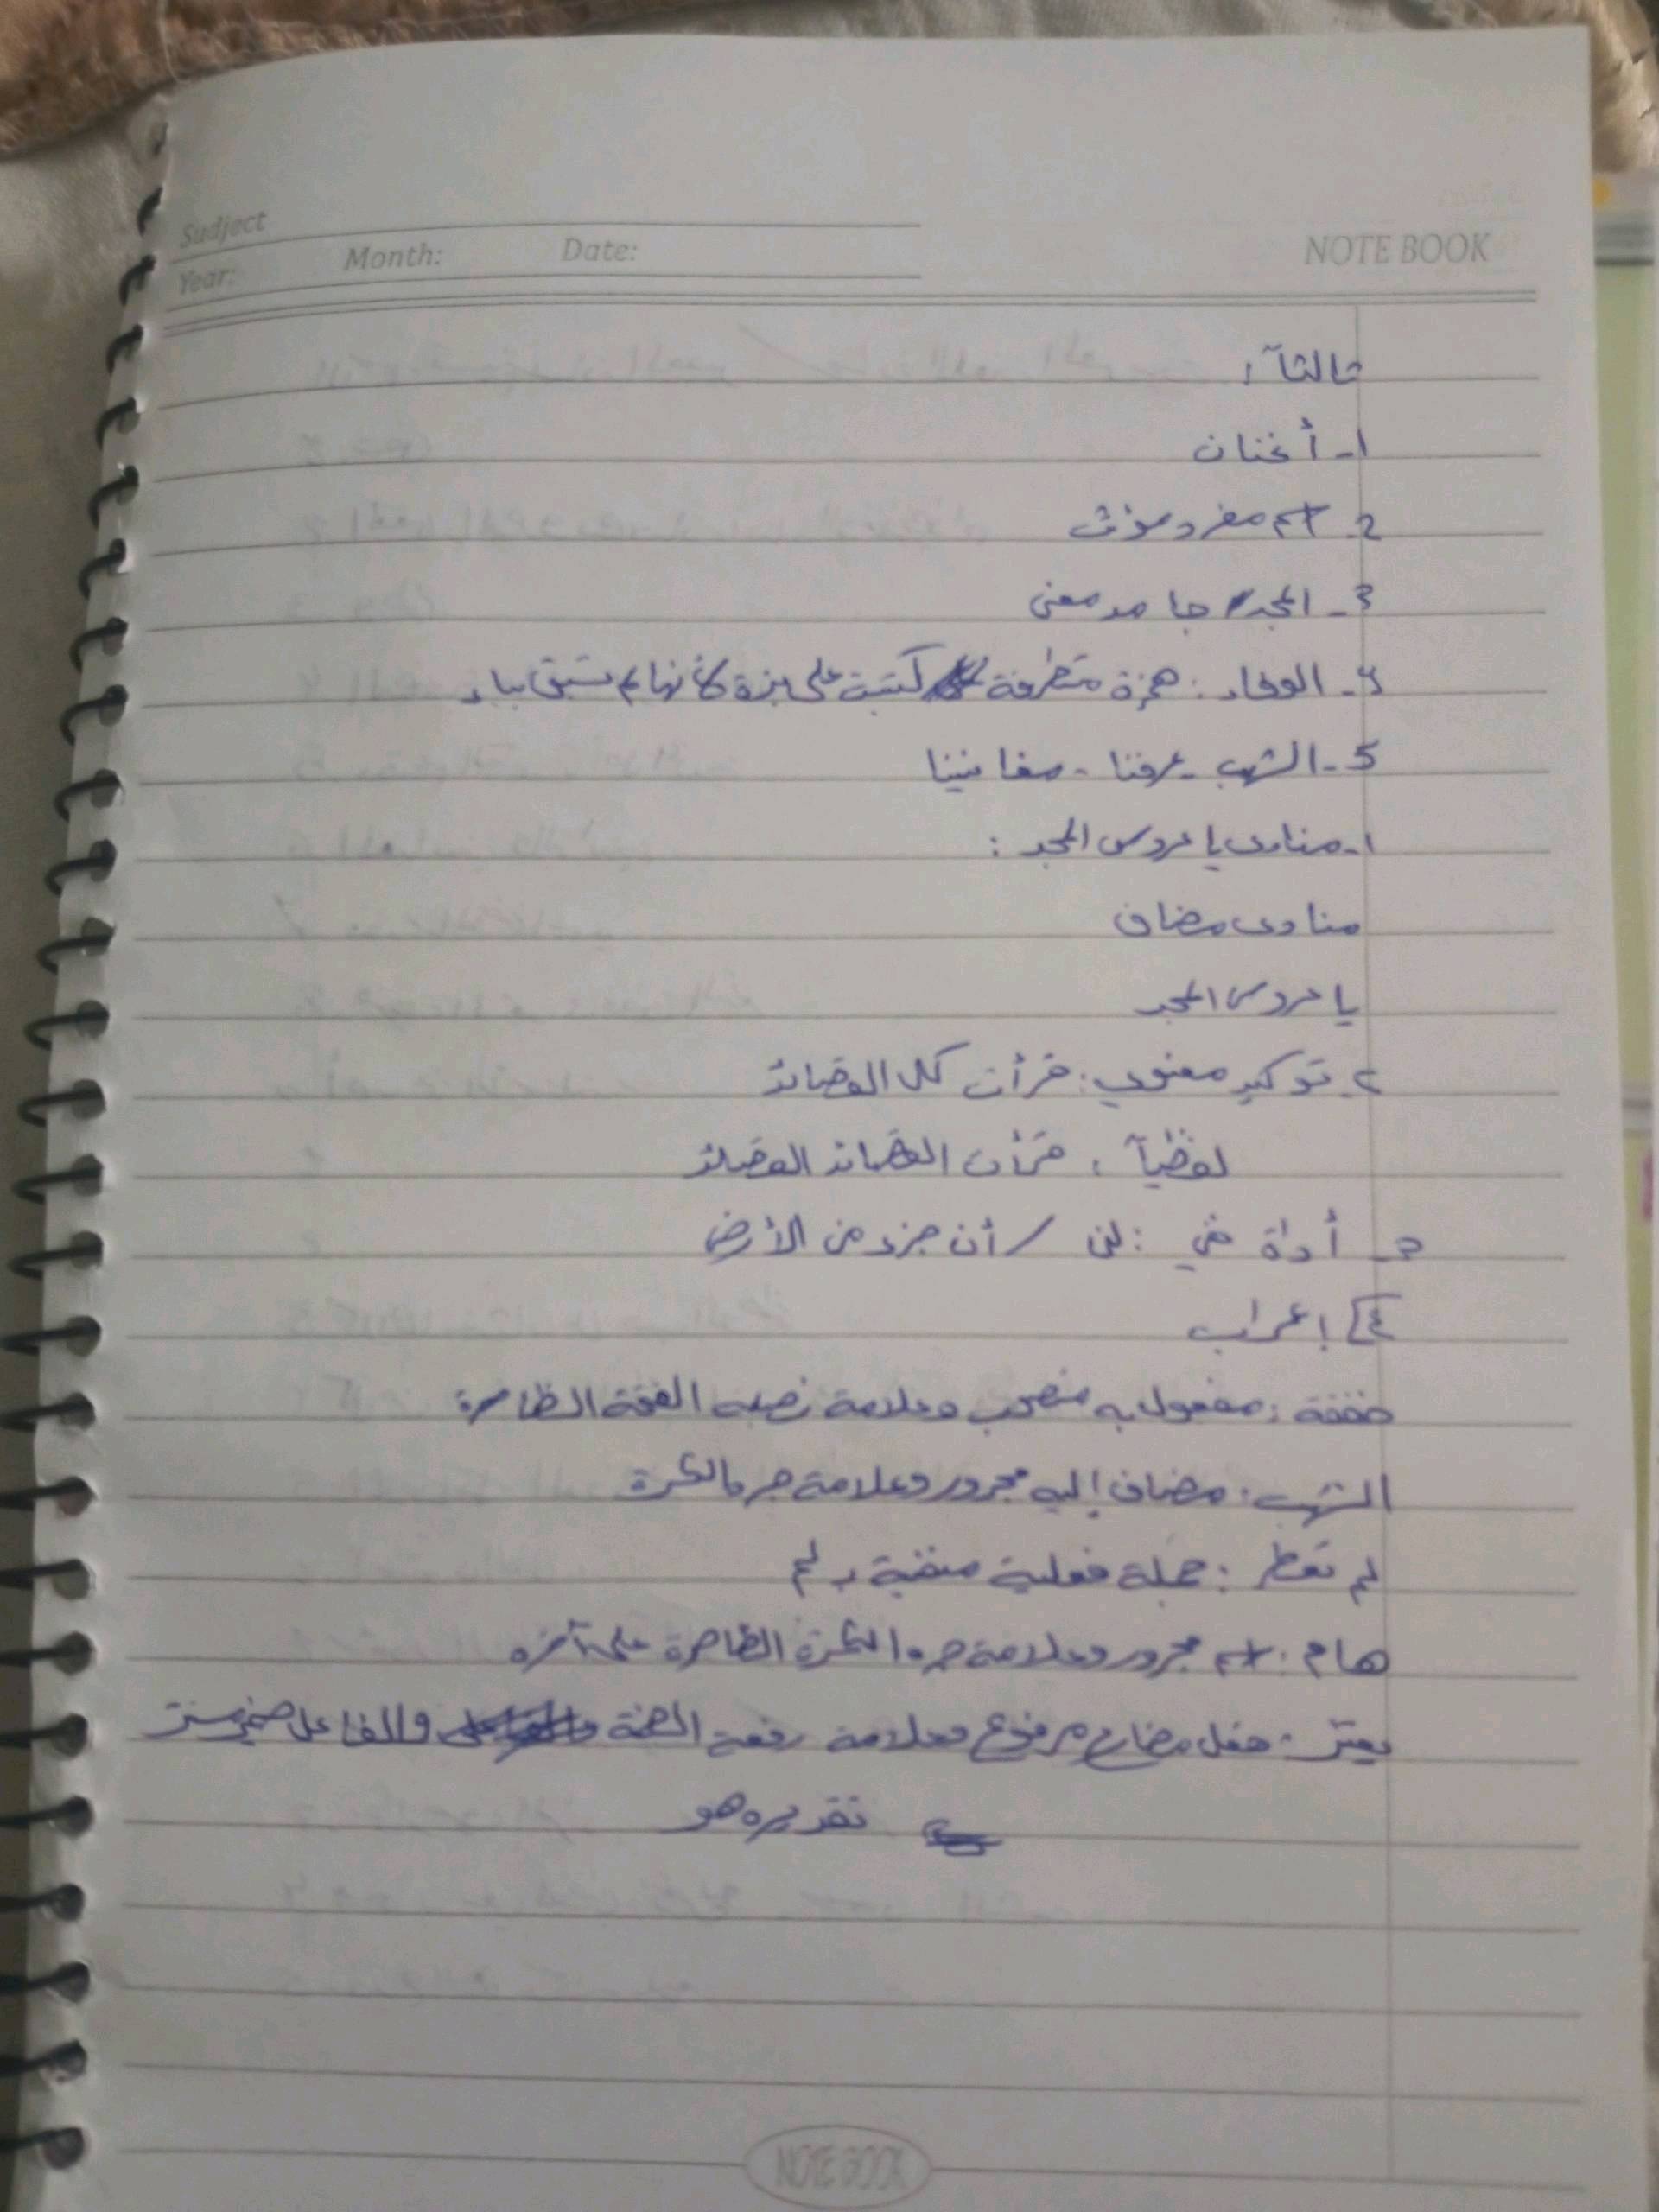 Sudject
Year: Month: Date:
NOTE BOOK
ثالثاً:
1- أغنان
2- اسم مفرد مؤنث
3- المجد/ جامد معنى
4- الوفاء: همزة متطرفة كتبت على نبرة لأنها لم تسبق بياء
5- الشهب - عرفنا - مغانينا
1- منادى يا عروس المجد:
منادى مضاف
يا عروس المجد
2- توكيد معنوي: قرأت كل القصائد
لفظياً: قرأت القصائد القصائد
3- أداة نفي: لن / أن جزء من الأرض
4] إعراب
خفقة: مفعول به منصوب وعلامة نصبه الفتحة الظاهرة
الشهب: مضاف إليه مجرور وعلامة جر بالكسرة
لم تعطر: جملة فعلية منفية بـ لم
هام: اسم مجرور وعلامة جره الكسرة الظاهرة على آخره
يعتز: فعل مضارع مرفوع وعلامة رفعه الضمة والفاعل ضمير مستتر
تقديره هو
NOTE BOOK